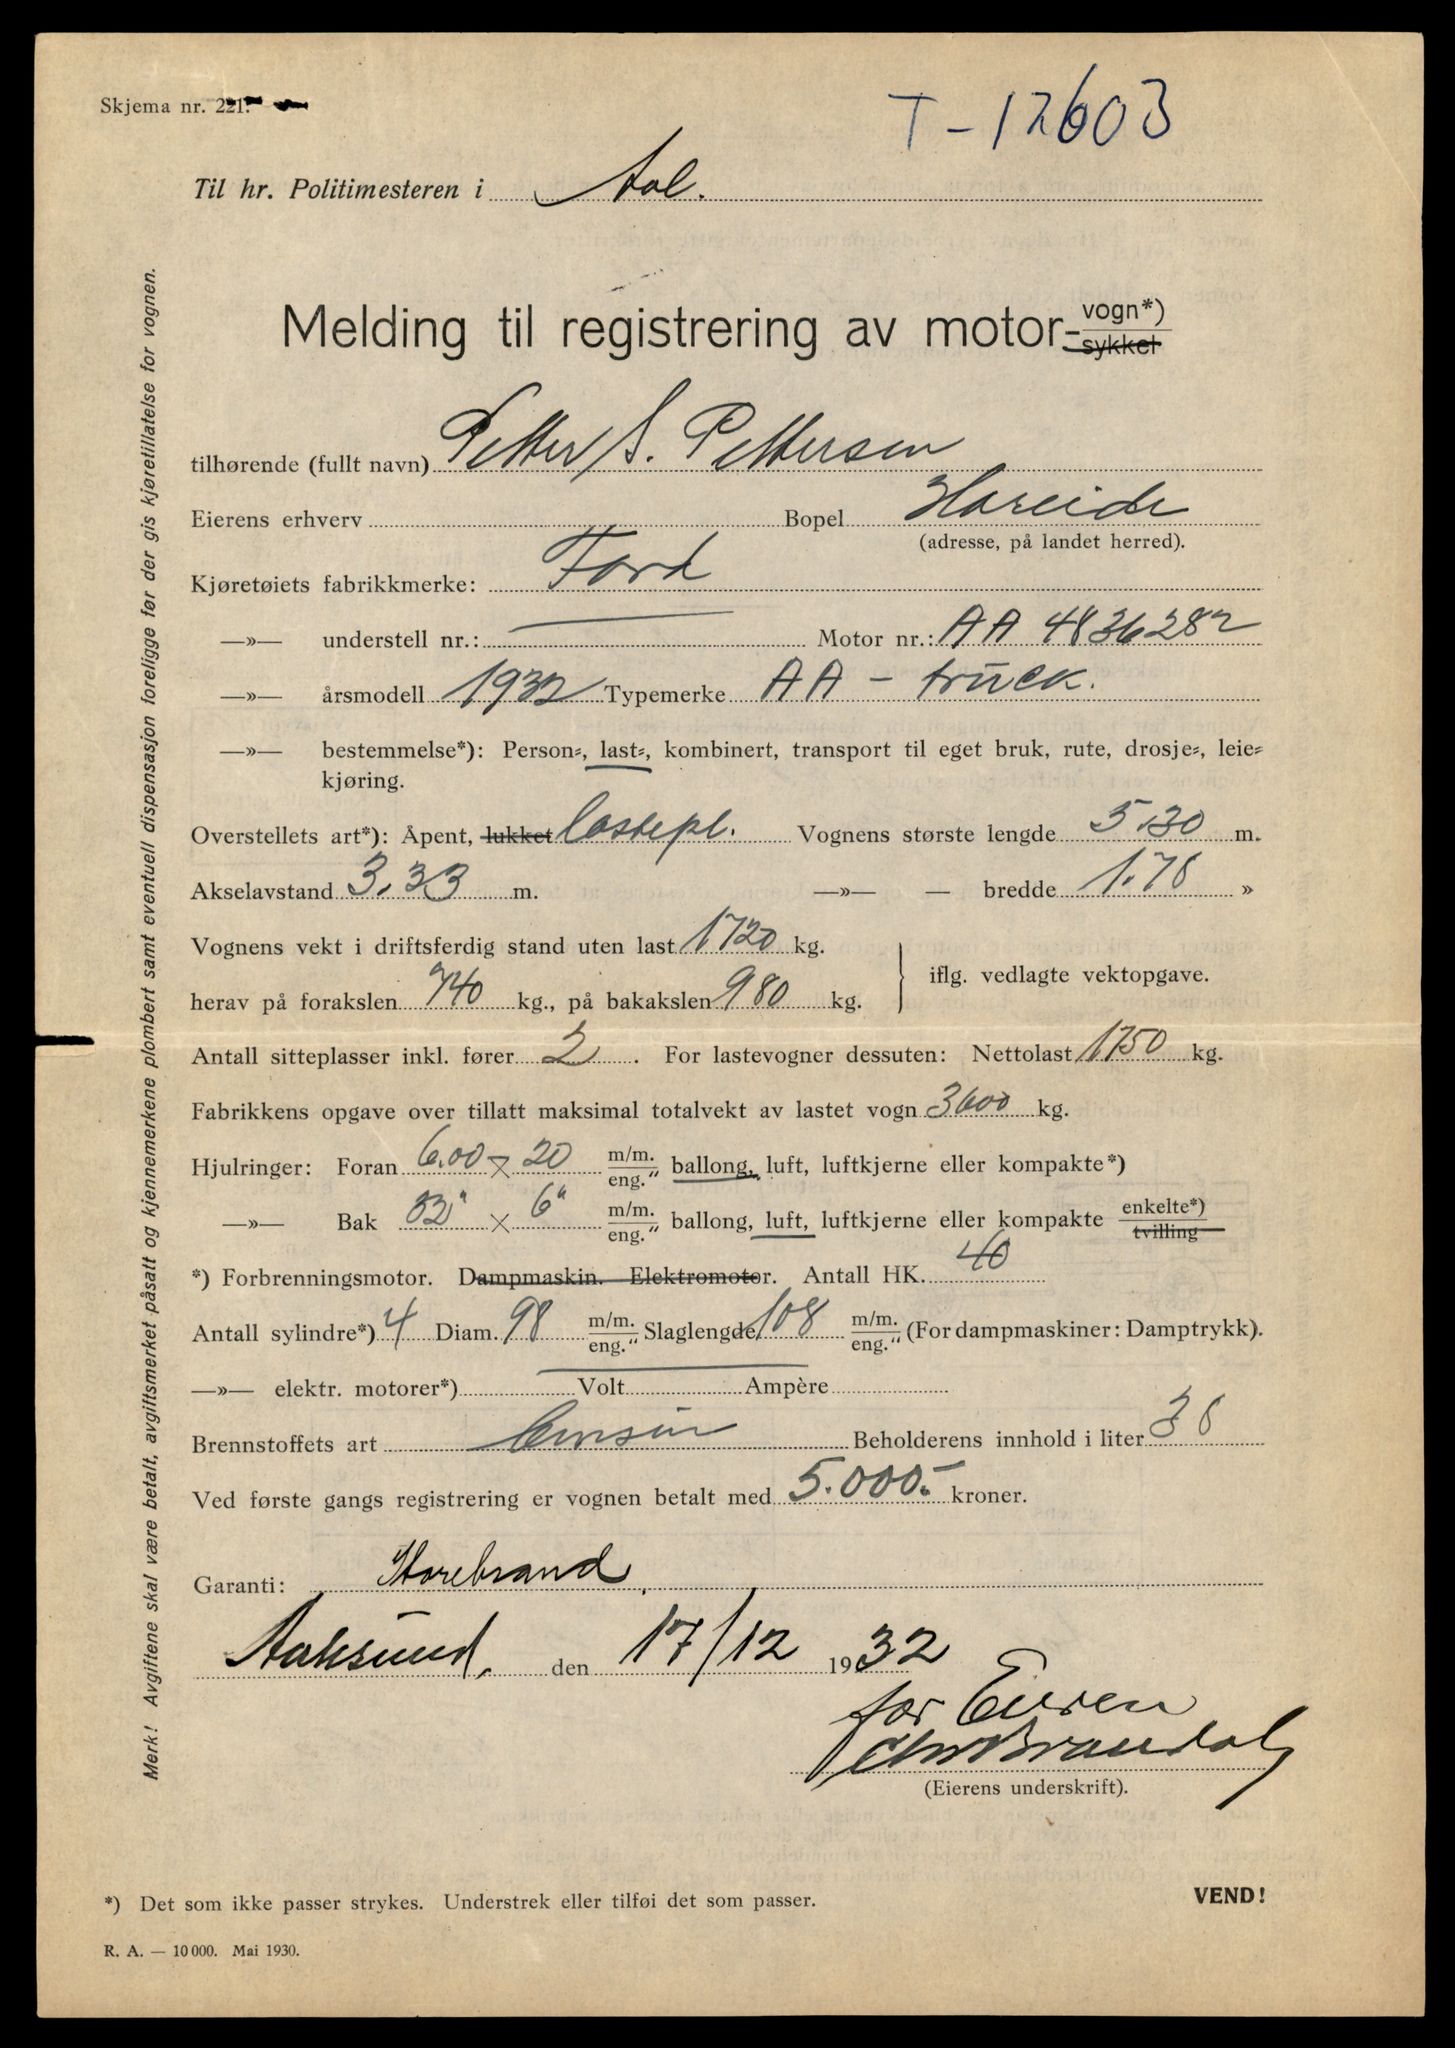 Skjema nr. 221.
T-12603
Til hr. Politimesteren i Aal.
Melding til registrering av motor- vogn*) sykkel
tilhørende (fullt navn) Petter S. Pettersen
Eierens erhverv Bopel Hareide
(adresse, på landet herred).
Kjøretøiets fabrikkmerke: Ford
—»— understell nr.: Motor nr.: AA 4836282
—»— årsmodell 1932 Typemerke AA - truck.
—»— bestemmelse*): Person-, last-, kombinert, transport til eget bruk, rute, drosje-, leie-
kjøring.
Overstellets art*): Åpent, lukket lastepl. Vognens største lengde 5.30 m.
Akselavstand 3.33 m. —»— — bredde 1.78 »
Vognens vekt i driftsferdig stand uten last 1720 kg.
herav på forakslen 740 kg., på bakakslen 980 kg. iflg. vedlagte vektopgave.
Antall sitteplasser inkl. fører 2. For lastevogner dessuten: Nettolast 1750 kg.
Fabrikkens opgave over tillatt maksimal totalvekt av lastet vogn 3600 kg.
Hjulringer: Foran 6.00 × 20 m/m. eng." ballong, luft, luftkjerne eller kompakte*)
—»— Bak 32" × 6" m/m. eng." ballong, luft, luftkjerne eller kompakte enkelte*) tvilling
*) Forbrenningsmotor. Dampmaskin. Elektromotor. Antall HK. 40
Antall sylindre*) 4 Diam. 98 m/m. eng." Slaglengde 108 m/m. eng." (For dampmaskiner: Damptrykk).
—»— elektr. motorer*) Volt Ampère
Brennstoffets art Bensin Beholderens innhold i liter 38
Ved første gangs registrering er vognen betalt med 5.000.- kroner.
Garanti: Storebrand.
Aalesund, den 17/12 1932
for Eieren
Chr Brandal
(Eierens underskrift).
*) Det som ikke passer strykes. Understrek eller tilføi det som passer.
VEND!
R. A. — 10 000. Mai 1930.
Merk! Avgiftene skal være betalt, avgiftsmerket påsatt og kjennemerkene plombert samt eventuell dispensasjon foreligge før der gis kjøretillatelse for vognen.